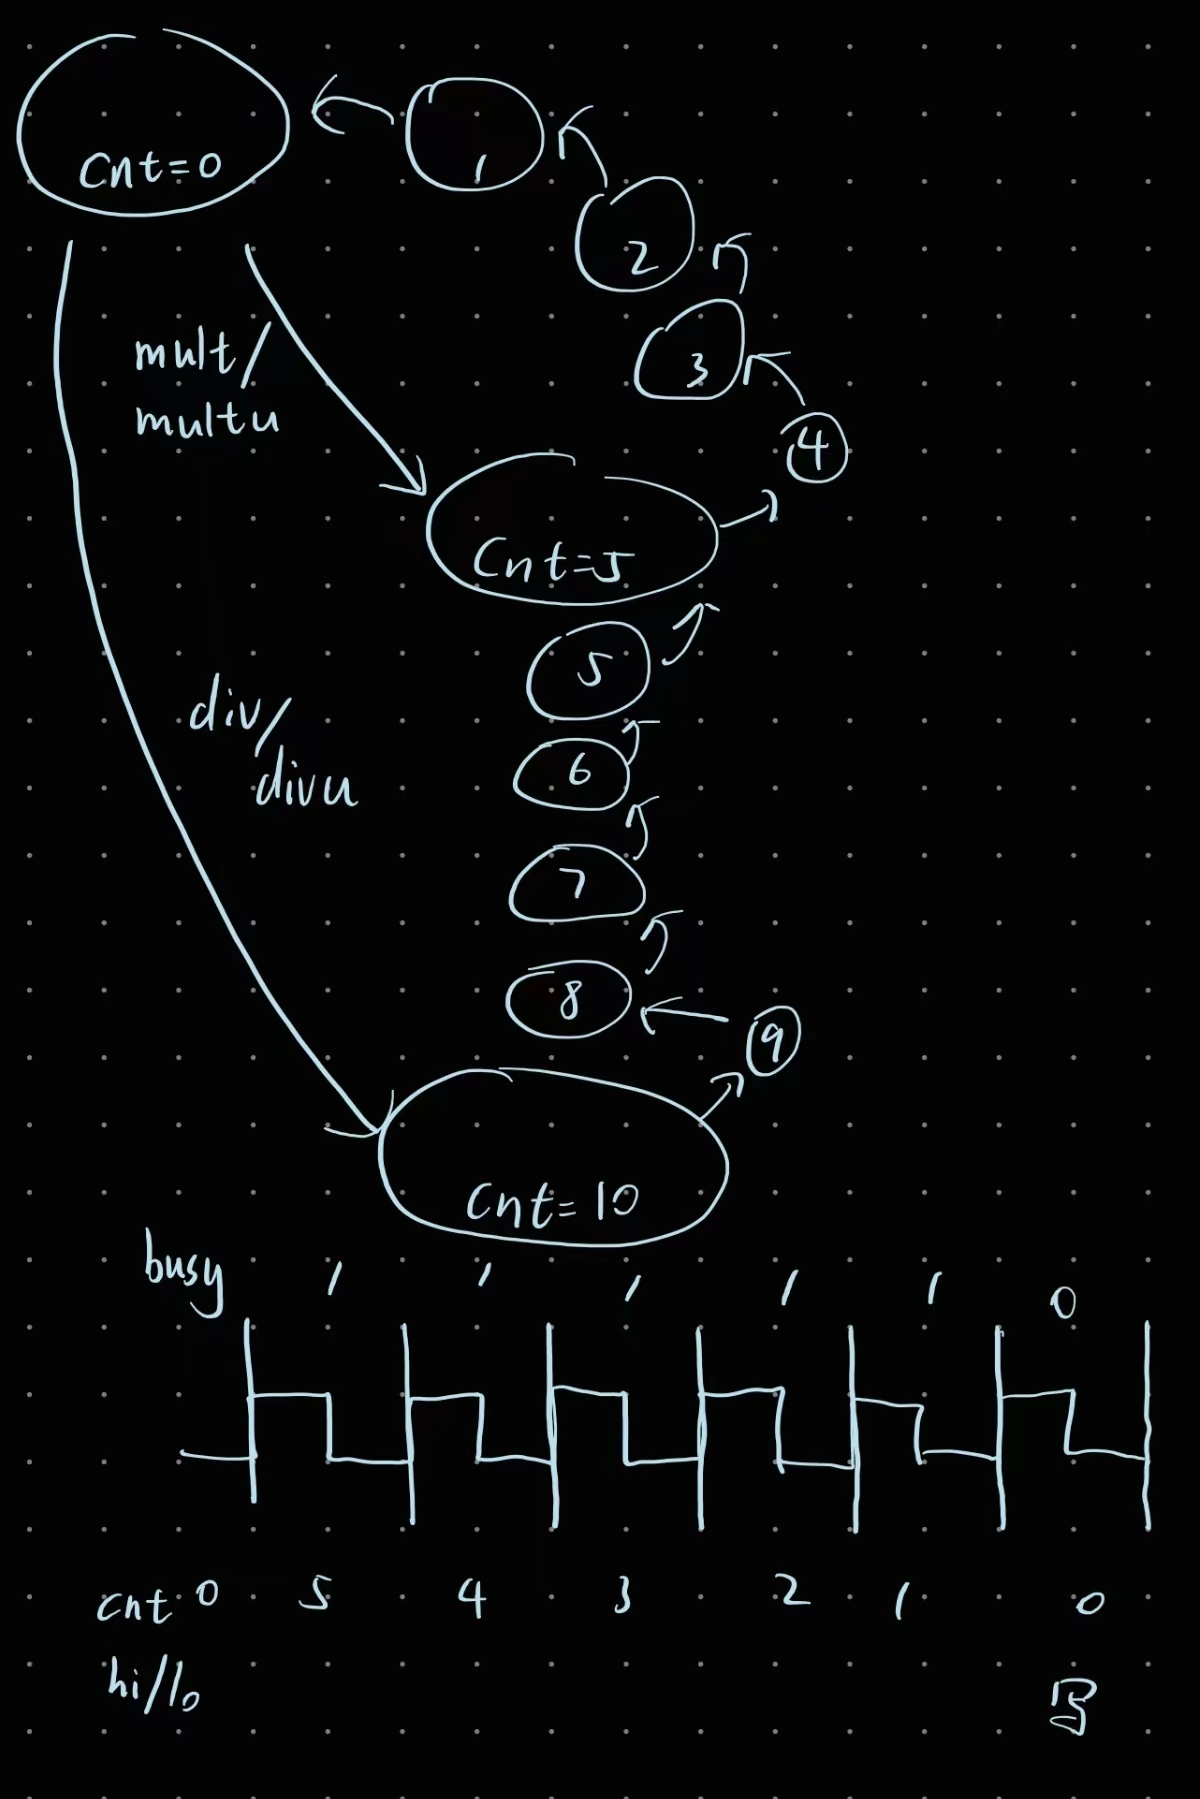 Cnt=0
1
2
3
4
mult/
multu
Cnt=5
5
6
7
8
9
div/
divu
Cnt=10
busy 1 1 1 1 1 0
cnt 0 5 4 3 2 1 0
hi/lo